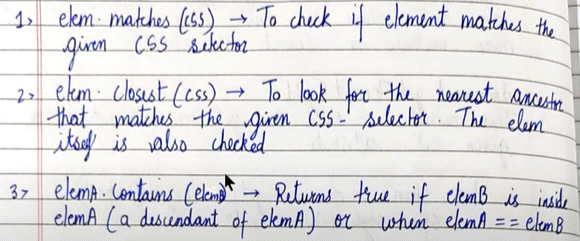 1> elem. matches (css) → To check if element matches the
given CSS selector
2> elem. closest (css) → To look for the nearest ancestor
that matches the given CSS-selector. The elem
itself is also checked
3> elemA. contains (elemB) → Returns true if elemB is inside
elemA (a descendant of elemA) or when elemA == elemB